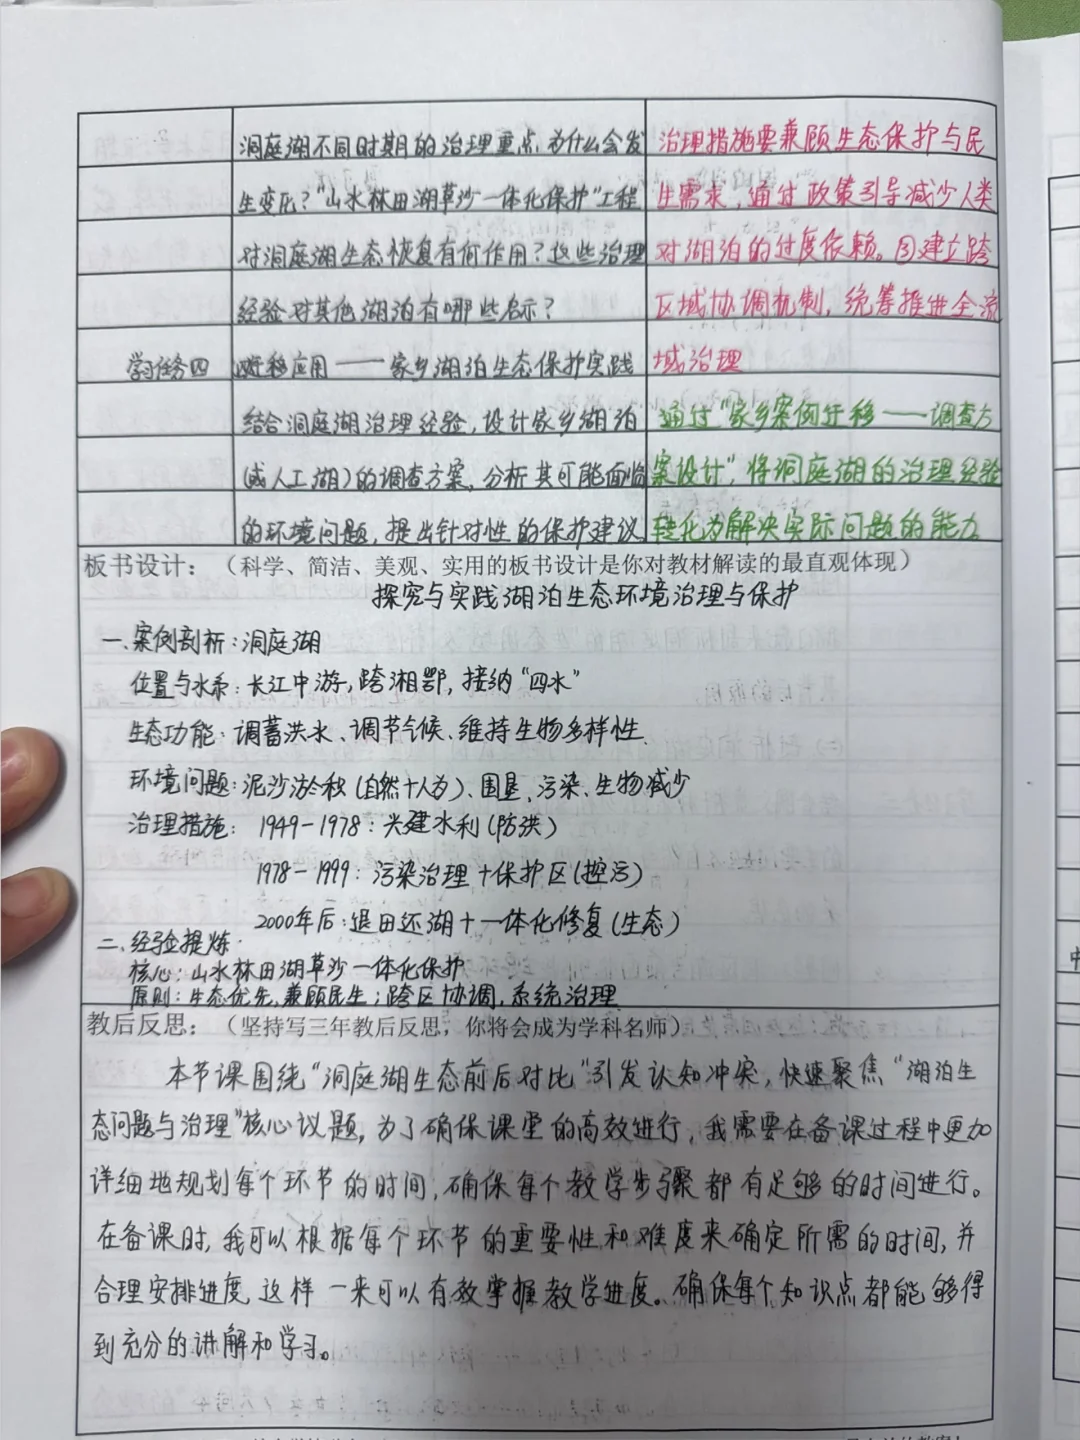 洞庭湖不同时期的治理重点为什么会发
生变化？"山水林田湖草沙一体化保护"工程
对洞庭湖生态恢复有何作用？这些治理
经验对其他湖泊有哪些启示？
学习任务四 迁移应用——家乡湖泊生态保护实践
结合洞庭湖治理经验，设计家乡湖泊
（或人工湖）的调查方案，分析其可能面临
的环境问题，提出针对性的保护建议
治理措施要兼顾生态保护与民
生需求，通过政策引导减少人类
对湖泊的过度依赖。③建立跨
区域协调机制，统筹推进全流
域治理
通过"家乡案例迁移——调查方
案设计"，将洞庭湖的治理经验
转化为解决实际问题的能力
板书设计：（科学、简洁、美观、实用的板书设计是你对教材解读的最直观体现）
探究与实践湖泊生态环境治理与保护
一、案例剖析：洞庭湖
位置与水系：长江中游，跨湘鄂，接纳"四水"
生态功能：调蓄洪水、调节气候、维持生物多样性.
环境问题：泥沙淤积（自然+人为）、围垦、污染、生物减少
治理措施：1949-1978：兴建水利（防洪）
1978-1999：污染治理+保护区（控污）
2000年后：退田还湖+一体化修复（生态）
二、经验提炼
核心：山水林田湖草沙一体化保护
原则：生态优先，兼顾民生；跨区协调，系统治理
教后反思：（坚持写三年教后反思，你将会成为学科名师）
本节课围绕"洞庭湖生态前后对比"引发认知冲突，快速聚焦"湖泊生
态问题与治理"核心议题，为了确保课堂的高效进行，我需要在备课过程中更加
详细地规划每个环节的时间，确保每个教学步骤都有足够的时间进行。
在备课时，我可以根据每个环节的重要性和难度来确定所需的时间，并
合理安排进度，这样一来可以有效掌握教学进度。确保每个知识点都能够得
到充分的讲解和学习。